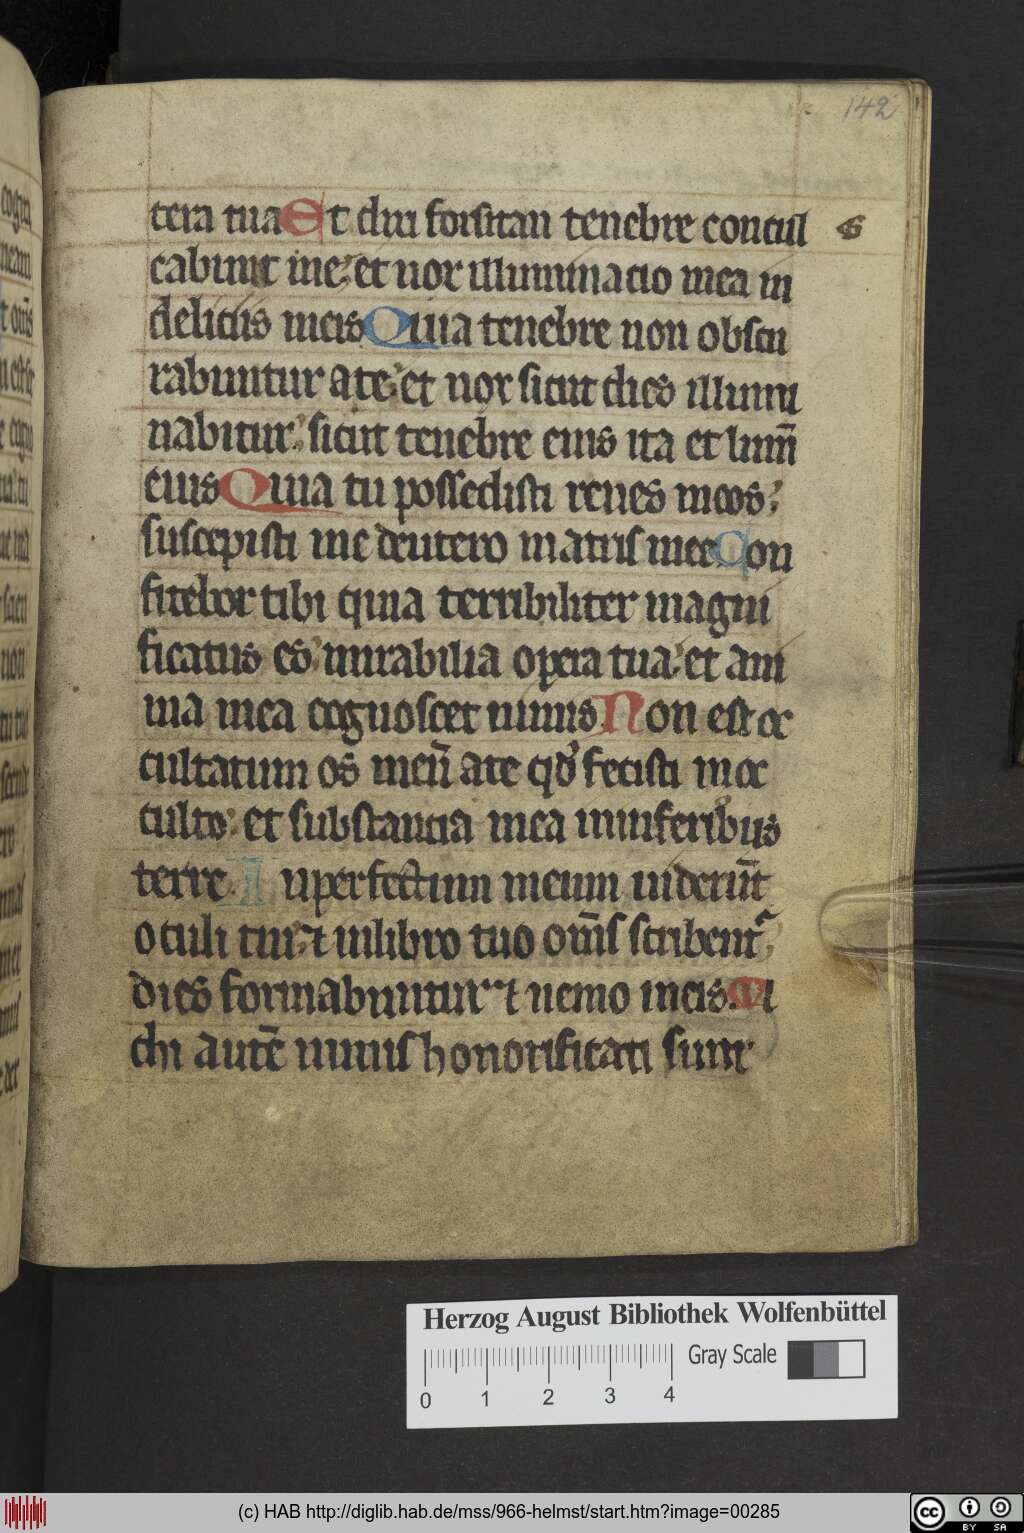 142
tera tua Et dixi forsitan tenebre concul
cabunt me et nox illuminacio mea in
deliciis meis Quia tenebre non obscu
rabuntur a te et nox sicut dies illumi
nabitur sicut tenebre eius ita et lum̄
eius Quia tu possedisti renes meos
suscepisti me de utero matris mee Con
fitebor tibi quia terribiliter magni
ficatus es mirabilia opera tua et ani
ma mea cognoscet nimis Non est oc
cultatum os meū a te qd̓ fecisti in oc
culto et substancia mea in inferibus
terre In perfectum meum viderūt
oculi tui ⁊ in libro tuo om̄s scribent᷑
dies formabuntur ⁊ nemo in eis Mi
chi autē nimis honorificati sunt
Herzog August Bibliothek Wolfenbüttel
Gray Scale
0 1 2 3 4
(c) HAB http://diglib.hab.de/mss/966-helmst/start.htm?image=00285
cc BY SA